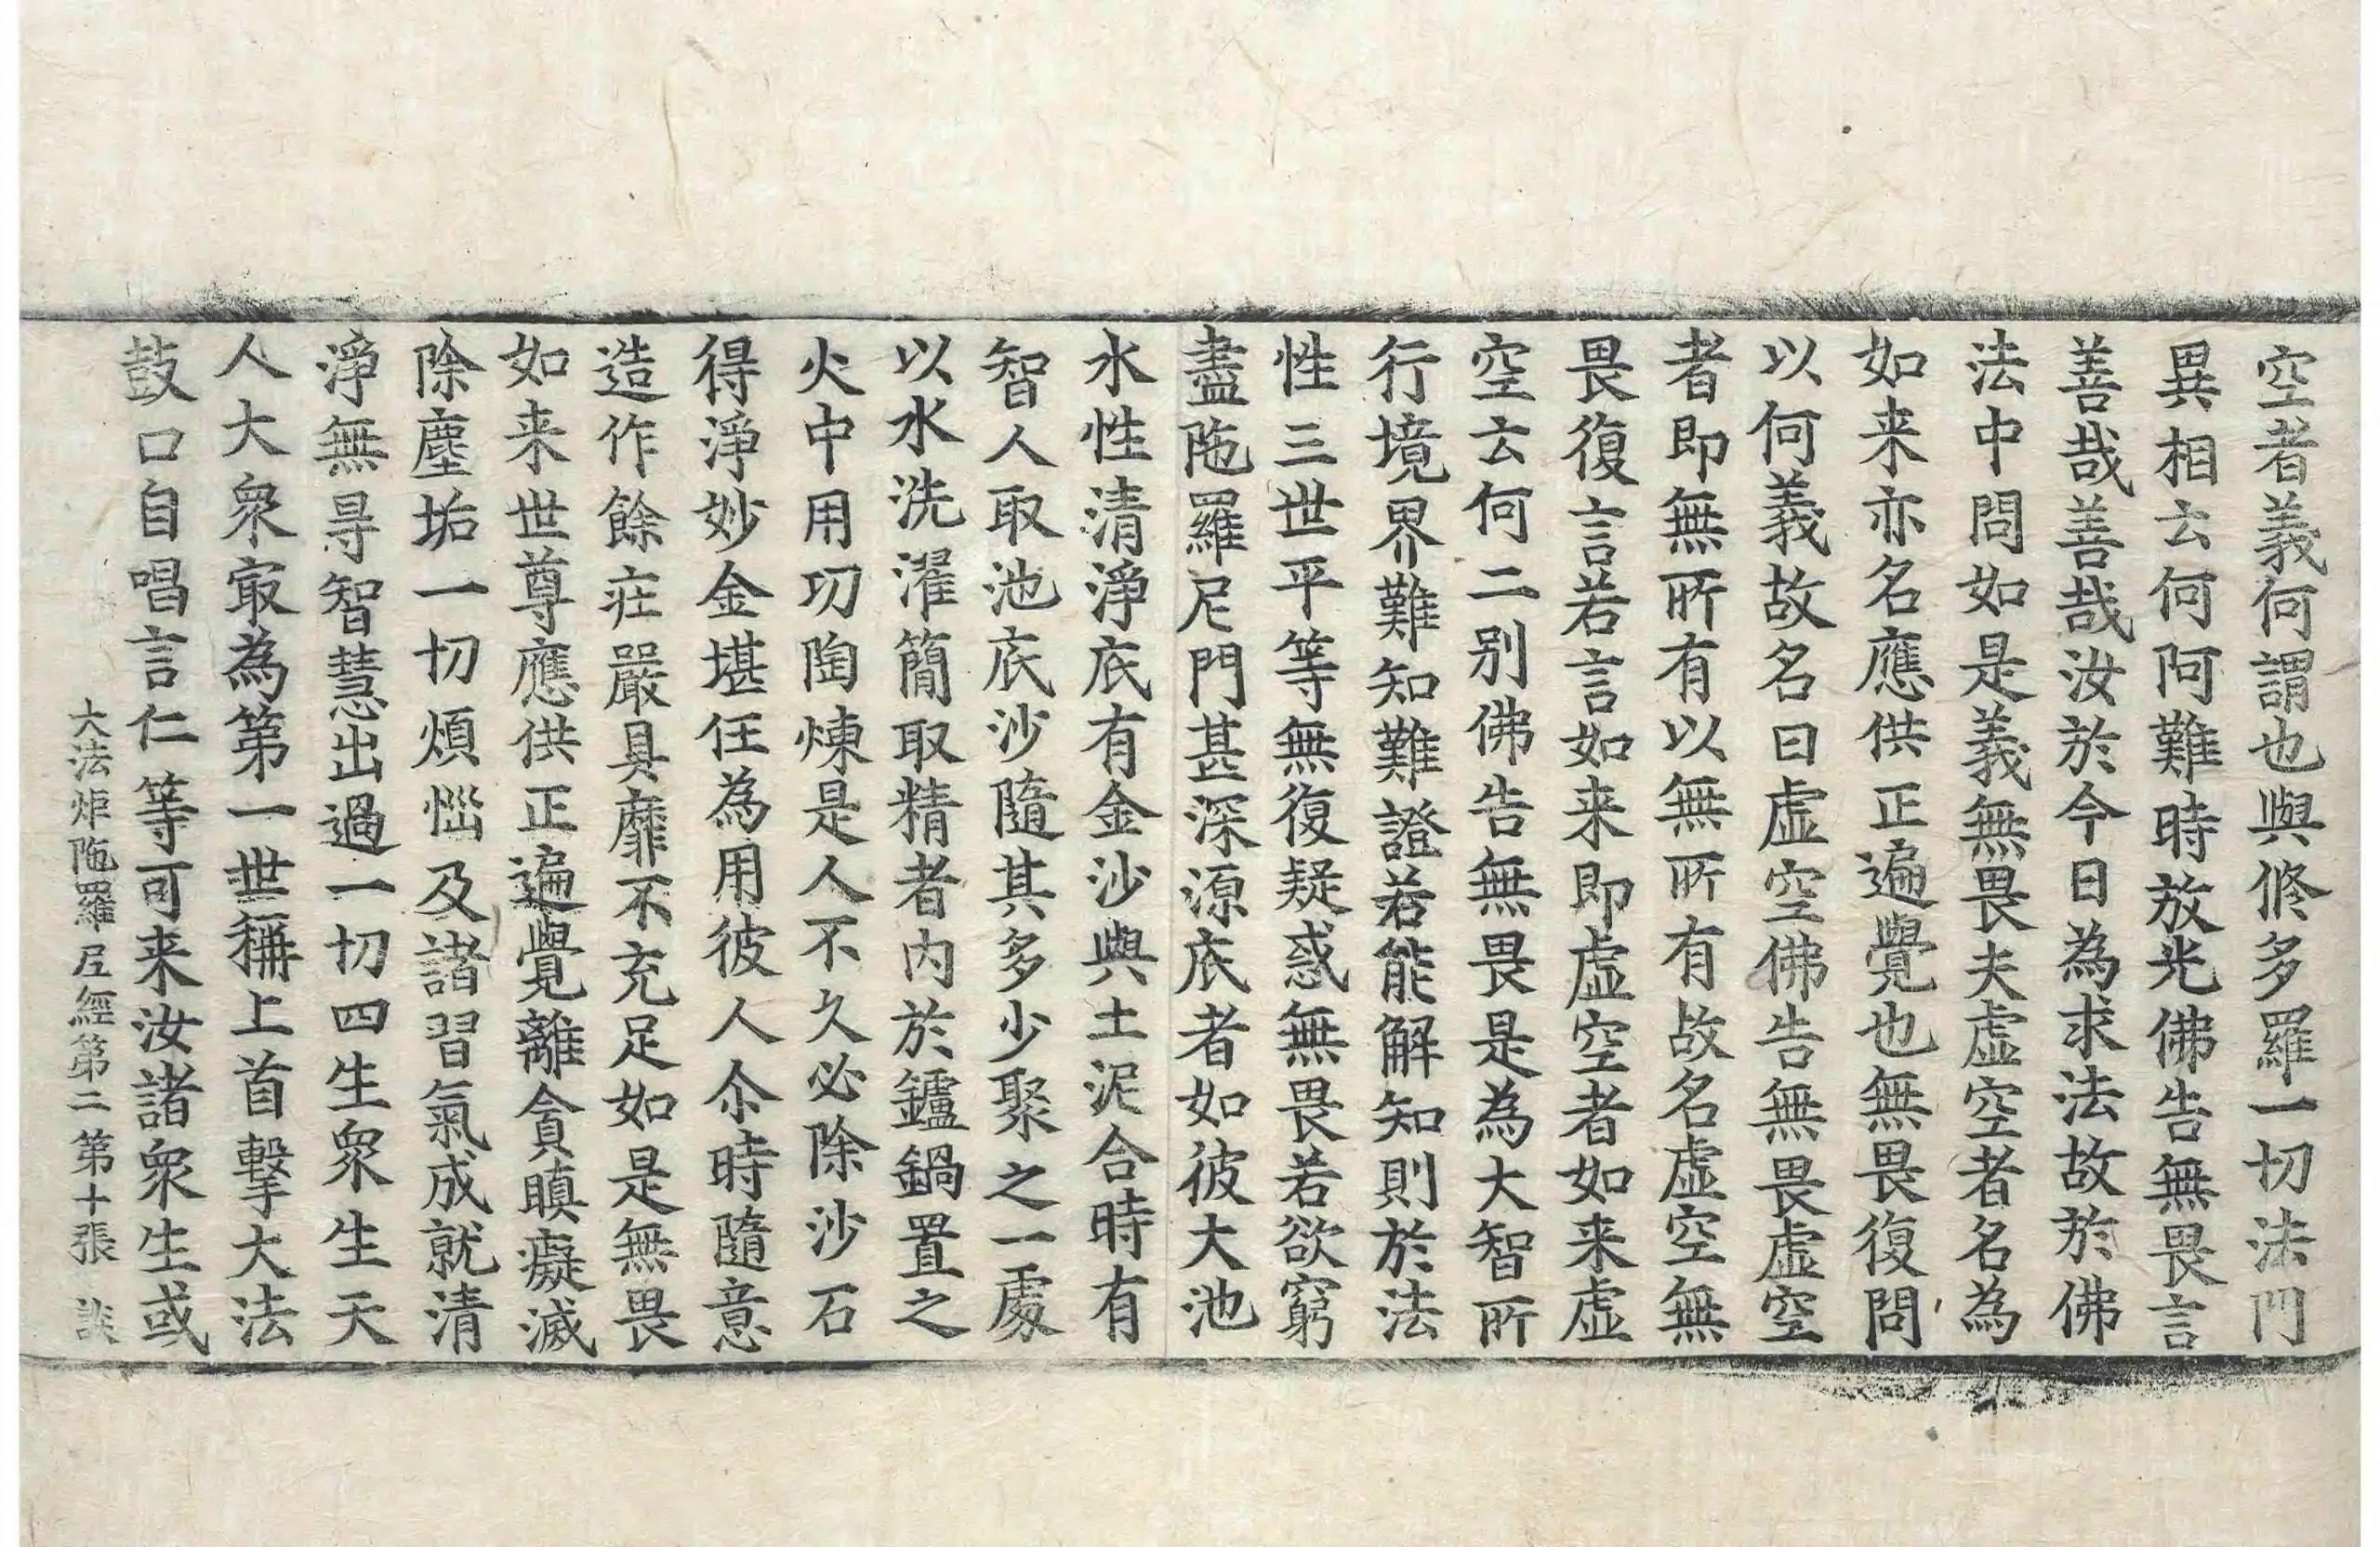 空者義何謂也與修多羅一切法門
異相云何阿難時放光佛告無畏言
善哉善哉汝於今日為求法故於佛
法中問如是義無畏夫虛空者名為
如来亦名應供正遍覺也無畏復問
以何義故名曰虛空佛告無畏虛空
者即無所有以無所有故名虛空無
畏復言若言如来即虛空者如来虛
空云何二别佛告無畏是為大智所
行境界難知難證若能解知則於法
性三世平等無復疑惑無畏若欲窮
盡陁羅尼門甚深源底者如彼大池
水性清淨底有金沙與土泥合時有
智人取池底沙隨其多少聚之一處
以水洗濯簡取精者内於鑪鍋置之
火中用功陶煉是人不久必除沙石
得淨妙金堪任為用彼人尒時隨意
造作餘莊嚴具靡不充足如是無畏
如来世尊應供正遍覺離貪瞋癡滅
除塵垢一切煩惱及諸習氣成就清
淨無㝵智慧出過一切四生衆生天
人大衆㝡為第一世稱上首擊大法
鼓口自唱言仁等可来汝諸衆生或
大法炬陁羅尼經第二 第十張 談